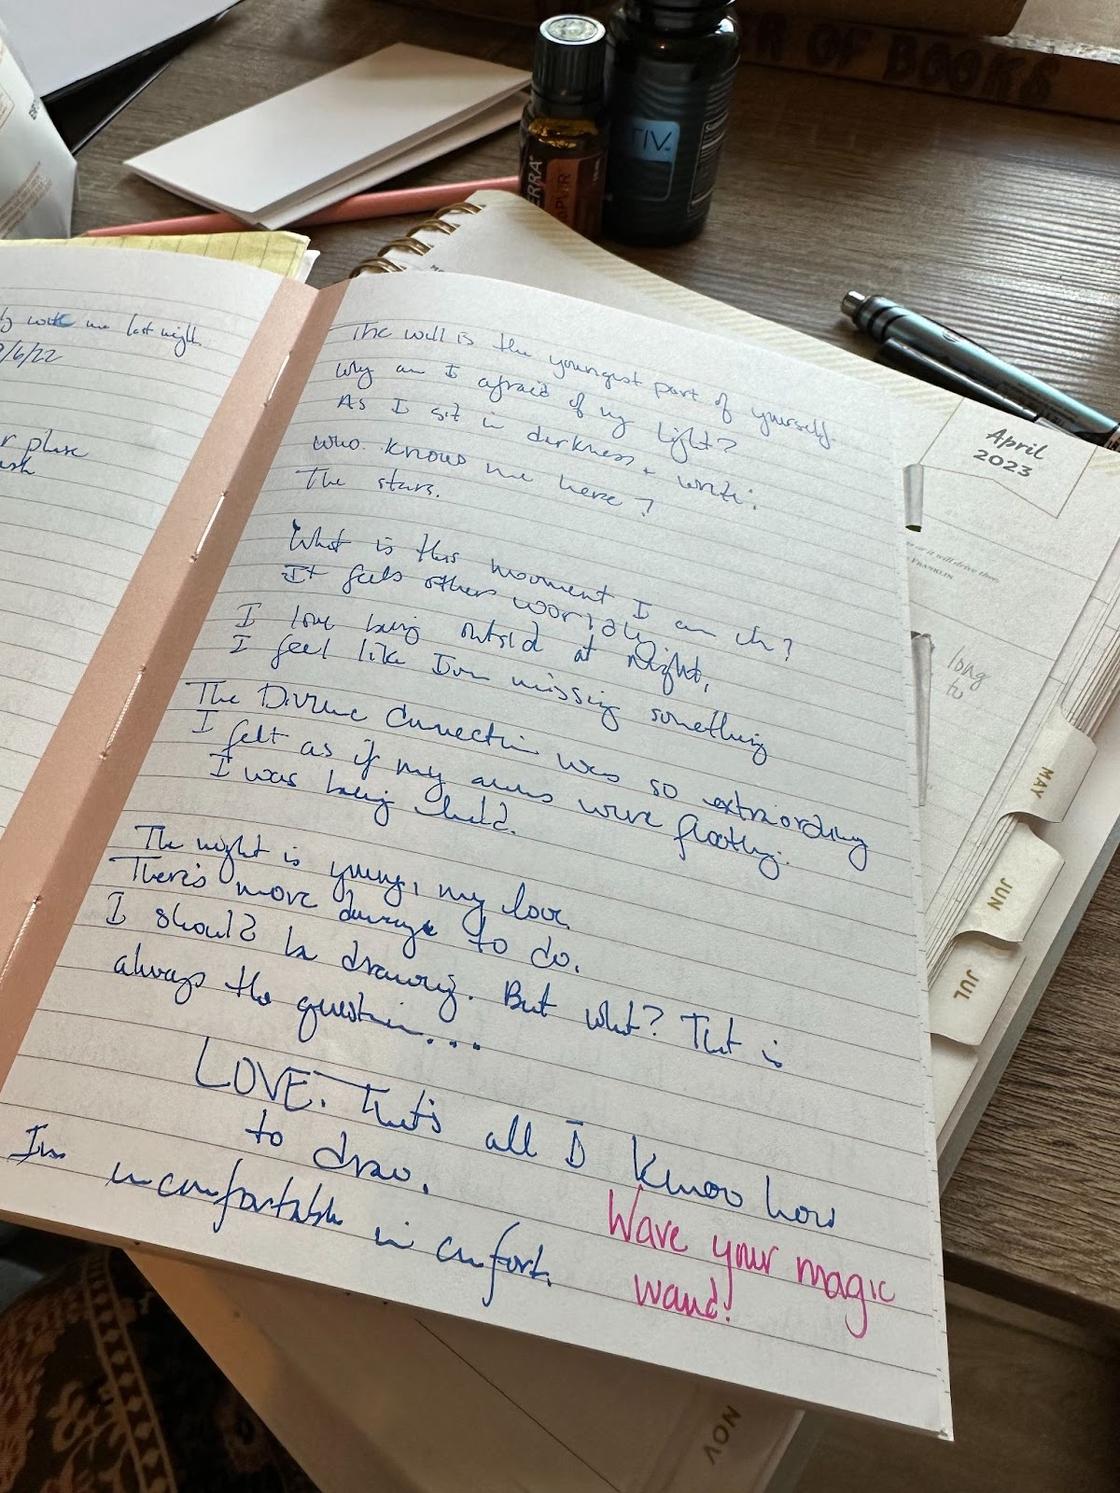 R OF BOOKS
TIV
ERRA
me last night
/6/22
r
The will is the youngest part of yourself.
Why am I afraid of my light?
As I sit in darkness + write:
who knows me here?
The stars.
What is this moment I am in?
It feels others worldly
I love being outside at night,
I feel like I'm missing something
The Divine Connection was so extraordinary
I felt as if my arms were floating.
I was being held.
The night is young, my love
There's more damage to do.
I should be drawing. But what? That is
always the question....
LOVE. That's all I know how
to draw.
I'm uncomfortable in comfort.
Wave your magic
wand!
April
2023
or it will drive thee
FRANKLIN
long
to
MAY
JUN
JUL
NOV